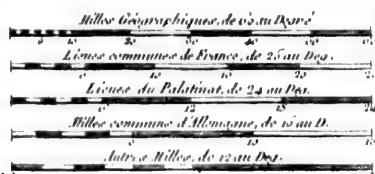 Milles Géographiques, de 60 au Degré
5 10 20 30 40 50 60
Lieues communes de France, de 25 au Deg.
Lieues du Palatinat, de 24 au Deg.
6 12 18 24
Milles communs d'Allemagne, de 15 au D.
Autres Milles, de 12 au Deg.